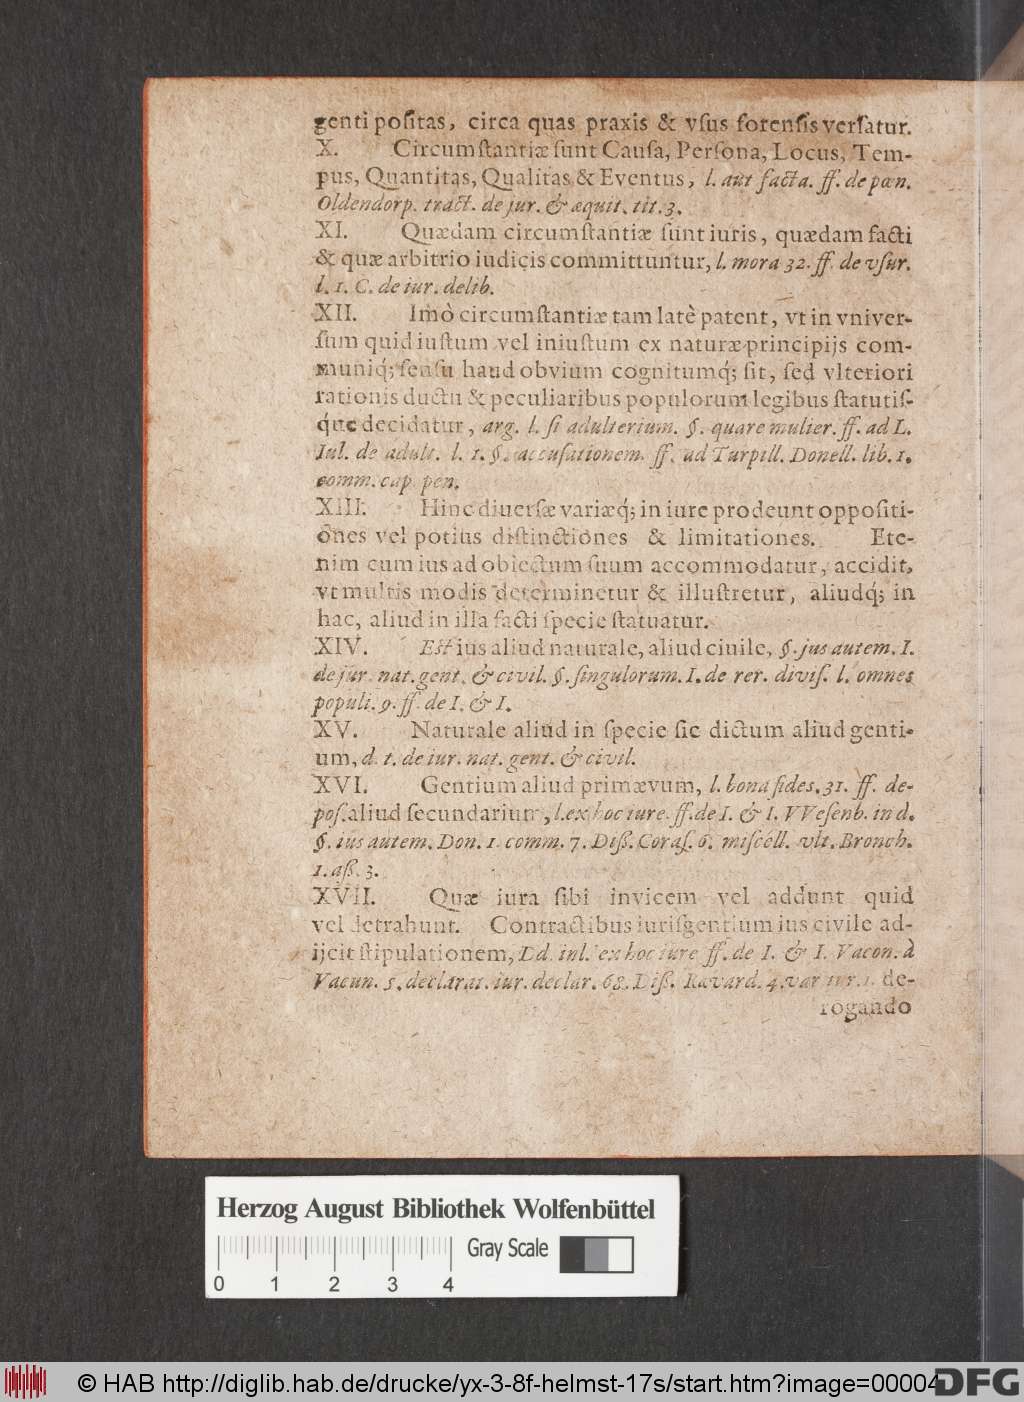 genti poſitas, circa quas praxis & vſus forenſis verſatur.
X. Circumſtantiæ ſunt Cauſa, Perſona, Locus, Tem-
pus, Quantitas, Qualitas & Eventus, l. aut facta. ff. de pœn.
Oldendorp. tract. de jur. & æquit. tit. 3.
XI. Quædam circumſtantiæ ſunt iuris, quædam facti
& quæ arbitrio iudicis committuntur, l. mora 32. ff. de vſur.
l. 1. C. de iur. delib.
XII. Imò circumſtantiæ tam latè patent, vt in vniver-
ſum quid iuſtum vel iniuſtum ex naturæ principijs com-
muniq́; ſenſu haud obvium cognitumq́; ſit, ſed vlteriori
rationis ductu & peculiaribus populorum legibus ſtatutiſ-
q́ue decidatur, arg. l. ſi adulterium. §. quare mulier. ff. ad L.
Iul. de adult. l. 1. §. accuſationem. ff. ad Turpill. Donell. lib. 1.
comm. cap. pen.
XIII. Hinc diuerſæ variæq́; in iure prodeunt oppoſiti-
ones vel potius diſtinctiones & limitationes. Ete-
nim cum ius ad obiectum ſuum accommodatur, accidit,
vt multis modis determinetur & illuſtretur, aliudq́; in
hac, aliud in illa facti ſpecie ſtatuatur.
XIV. Eſt ius aliud naturale, aliud ciuile, §. jus autem. I.
de jur. nat. gent. & civil. §. ſingulorum. I. de rer. diviſ. l. omnes
populi. 9. ff. de I. & I.
XV. Naturale aliud in ſpecie ſic dictum aliud genti-
um, d. t. de iur. nat. gent. & civil.
XVI. Gentium aliud primævum, l. bona fides. 31. ff. de-
poſ. aliud ſecundarium, l. ex hoc iure. ff. de I. & I. VVeſenb. in d.
§. ius autem. Don. 1. comm. 7. Diß. Coraſ. 6. miſcell. vlt. Bronch.
1. aß. 3.
XVII. Quæ iura ſibi invicem vel addunt quid
vel detrahunt. Contractibus iurisgentium ius civile ad-
ijcit ſtipulationem, l. d. in l. ex hoc iure ff. de I. & I. Vacon. à
Vacun. 5. declarat. iur. declar. 68. Diß. Ravard. 4. var iur. 1. de-
rogando
Herzog August Bibliothek Wolfenbüttel
Gray Scale
0 1 2 3 4
© HAB http://diglib.hab.de/drucke/yx-3-8f-helmst-17s/start.htm?image=00004
DFG